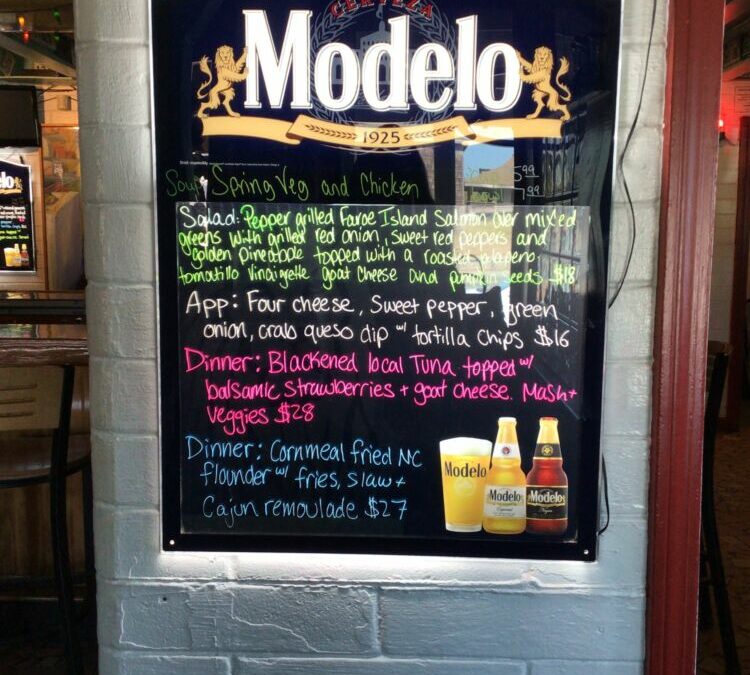 CERVEZA
Modelo
1925
Soup Spring Veg and Chicken
5.99
bowl 7.99
Salad: Pepper grilled Faroe Island Salmon over mixed
greens with grilled red onion, sweet red peppers and
golden pineapple topped with a roasted jalapeno
tomatillo vinaigrette goat cheese and pumpkin seeds $18
App: Four cheese, sweet pepper, green
onion, crab queso dip w/ tortilla chips $16
Dinner: Blackened local Tuna topped w/
balsamic strawberries + goat cheese. Mash +
veggies $28
Dinner: Cornmeal fried NC
flounder w/ fries, slaw +
Cajun remoulade $27
Modelo
Modelo
Modelo